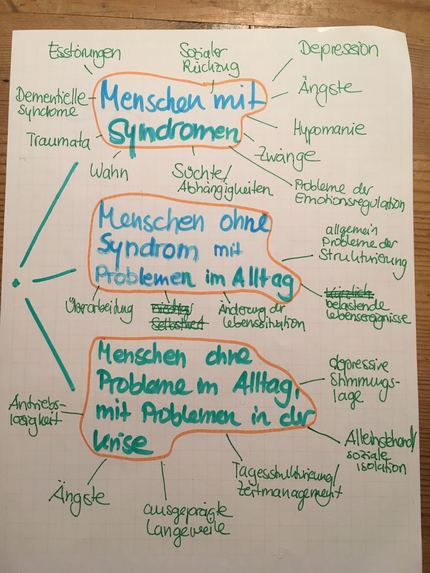 Esstörungen
Sozialer
Rückzug
Depression
Dementielle
syndrome
Menschen mit
Syndromen
Ängste
Hypomanie
Traumata
Zwänge
Wahn
Süchte/
Abhängigkeiten
Probleme der
Emotionsregulation
Menschen ohne
Syndrom mit
Problemen im Alltag
allgemein
Probleme der
Strukturierung
Überarbeitung
niedrig
Selbstwert
Änderung der
Lebenssituation
kürzlich
belastende
lebensereignisse
Menschen ohne
Probleme im Alltag,
mit Problemen in der
Krise
depressive
Stimmungs-
lage
Antriebs-
losigkeit
Alleinstehend/
soziale
isolation
Ängste
ausgeprägte
Langeweile
Tagesstrukturierung/
Zeitmanagement